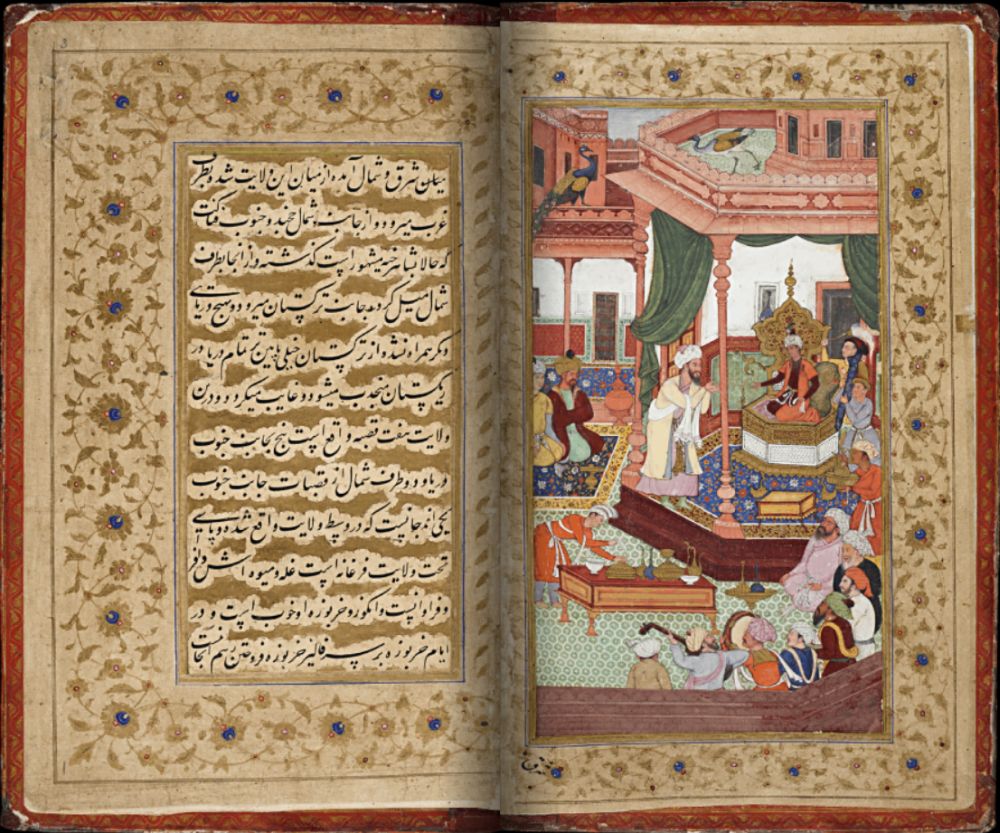 میان شرق و شمال آمده از میان این ولایت شده بطرف
غرب میرود و از جانب شمال خجند و جنوب فناکت
که حالا بشاهرخیه مشهور است گذشته و از انجا بطرف
شمال میل کرده بجانب ترکستان میرود و هیچ دریای
دیگر همراه نشده از ترکستان خیلی پایین تر تمام دریا در
ریکستان منجذب میشود و غایب میگردد و درین
ولایت هفت قصبه واقع است پنج بجانب جنوب
دریا و دو طرف شمال از قصبات جانب جنوب
یکی اندجانست که در وسط ولایت واقع شده و پای
تخت ولایت فرغانه است غله و میوه اش وافر
و فراوانست و انکور و خربوزه او خوب است و در
ایام خربوزه بر سر فالیز خربوزه فروختن رسم آنجا نیست
3